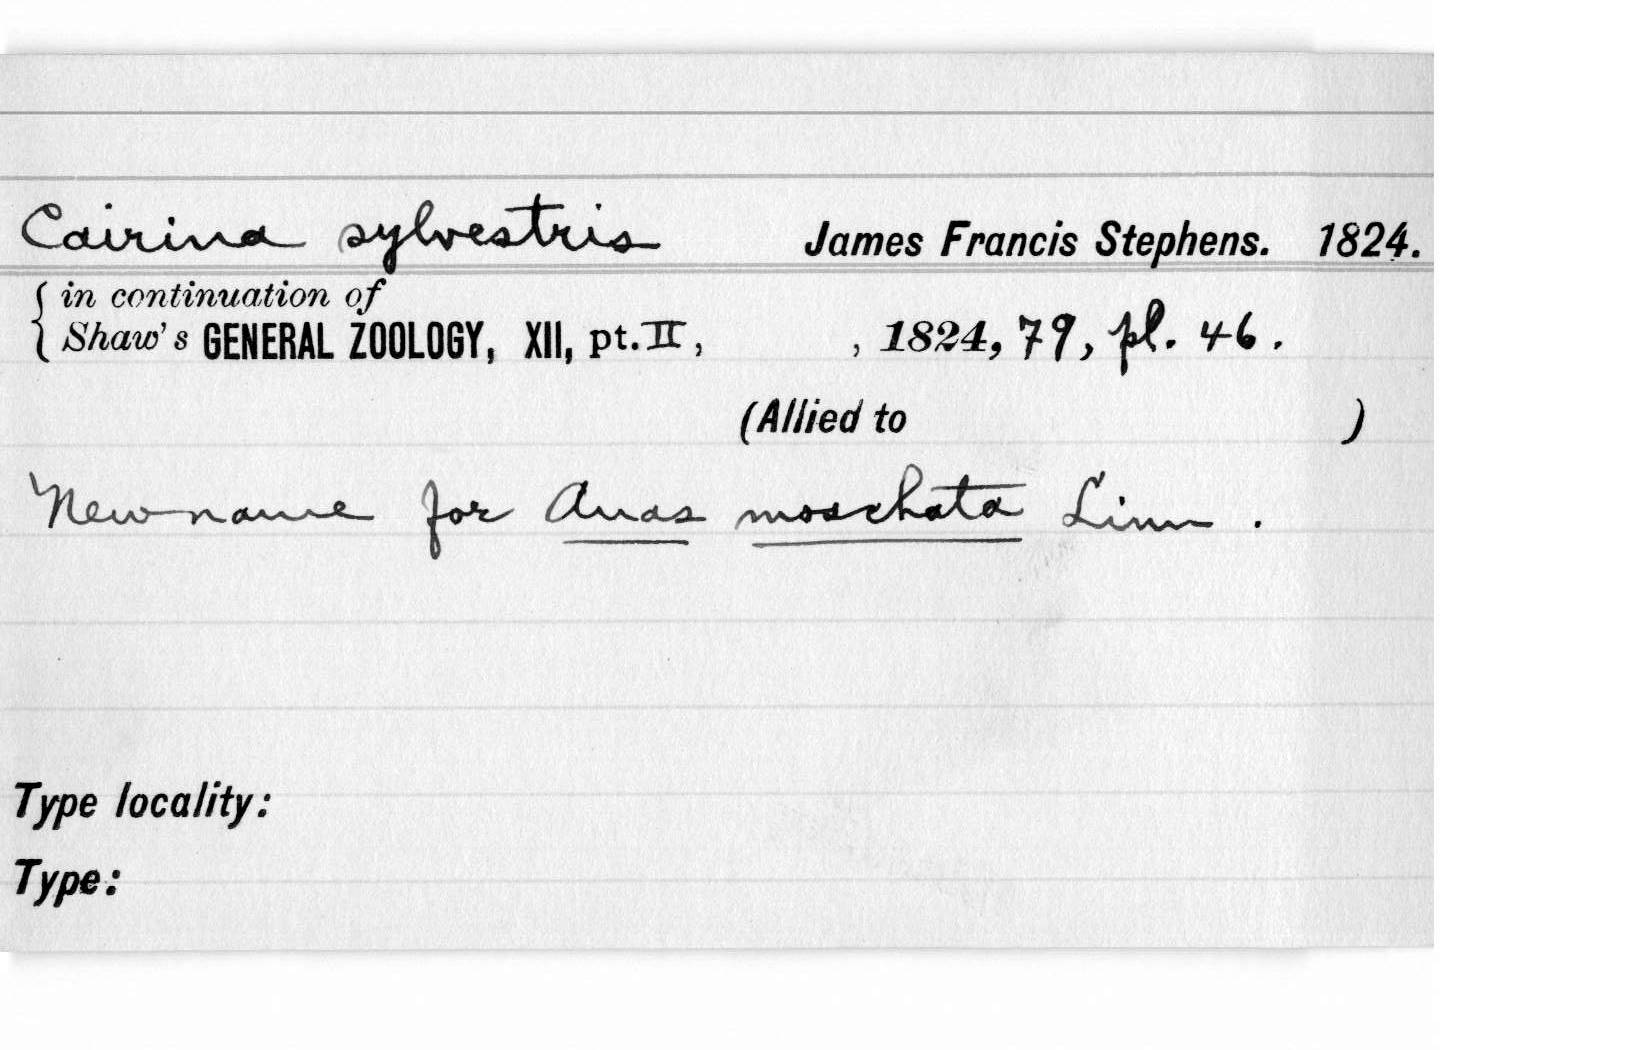 Cairina sylvestris James Francis Stephens. 1824.
{ in continuation of
Shaw's GENERAL ZOOLOGY, XII, pt. II, , 1824, 79, pl. 46.
(Allied to )
New name for Anas moschata Linn.
Type locality:
Type: